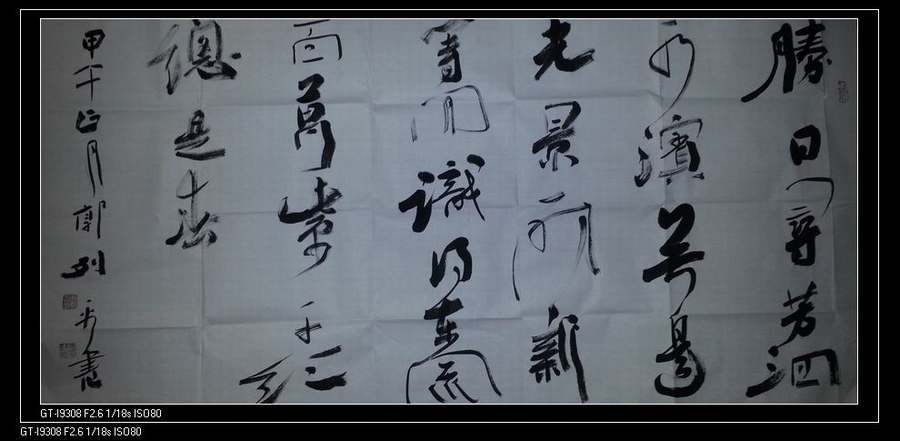 勝日尋芳泗
水濱無邊
光景一時新
等閒識得東風
面萬紫千紅
總是春
甲午正月郭列書
GT-I9308 F2.6 1/18s ISO80
GT-I9308 F2.6 1/18s ISO80